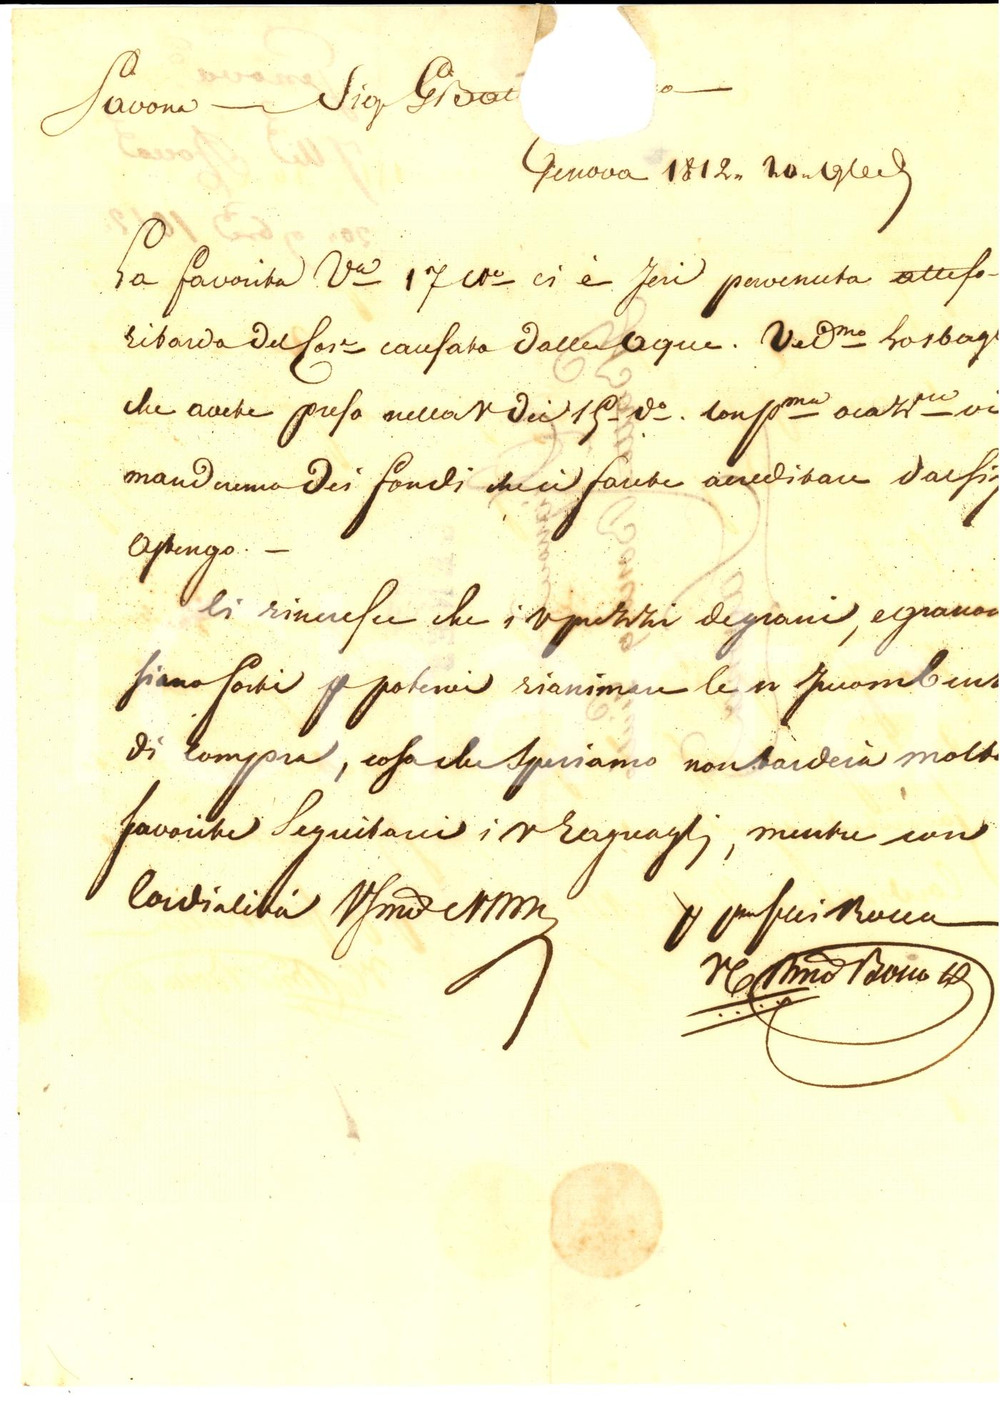 Savona — Sig G Batt
Genova 1812. 20. 9bre
La favorita Vra 17 Cte ci è Jeri pervenuta atteso
ritardo del Corre causato dalle Aque. Vedmo
che avete preso nella vra dei 15 do. Con pma occazne vi
manderemo dei fondi che ci farete accreditare dal Sig
Astengo. —
Ci rincresce che i vri prezzi de grani, e granon
siano forti p potervi rianimare le vre Incombenze
di Compra, cosa che Speriamo non tarderà molto
favorite Seguitarci i vri Ragguagli, mentre con
Cordialità
p Rocca